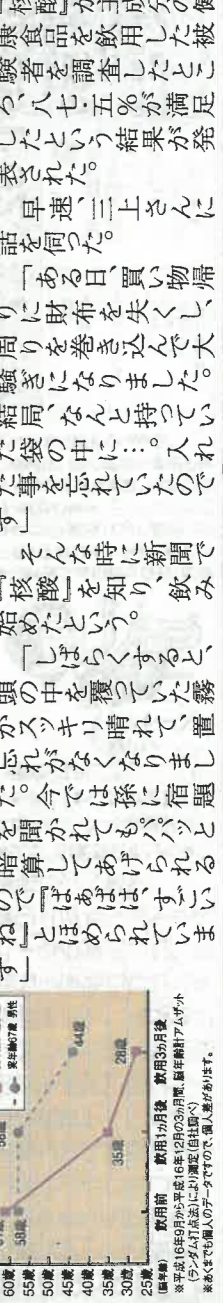 『核酸』が主成分の健
康食品を飲用した被
験者を調査したとこ
ろ、八七・五%が満足
したという結果が発
表された。
早速、三上さんに
話を伺った。
「ある日、買い物帰
りに財布を失くし、
周りを巻き込んで大
騒ぎになりました。
結局、なんと持ってい
た袋の中に…。入れ
た事を忘れていたので
す」
そんな時に新聞で
『核酸』を知り、飲み
始めたという。
「しばらくすると、
頭の中を覆っていた霧
がスッキリ晴れて、置
忘れがなくなりまし
た。今では孫に宿題
を聞かれてもパパッと
暗算してあげられる
ので『ばあばは、すごい
ね』とほめられていま
す」
実年齢67歳 男性
60歳
55歳
50歳
45歳
40歳
35歳
30歳
25歳
58歳
44歳
35歳
28歳
(脳年齢) 飲用前 飲用1ヵ月後 飲用3ヵ月後
※平成16年9月から平成16年12月の3ヵ月間、脳年齢計アムザット
(ランダム打点法)により測定(自社調べ)
※あくまでも個人のデータですので、個人差があります。